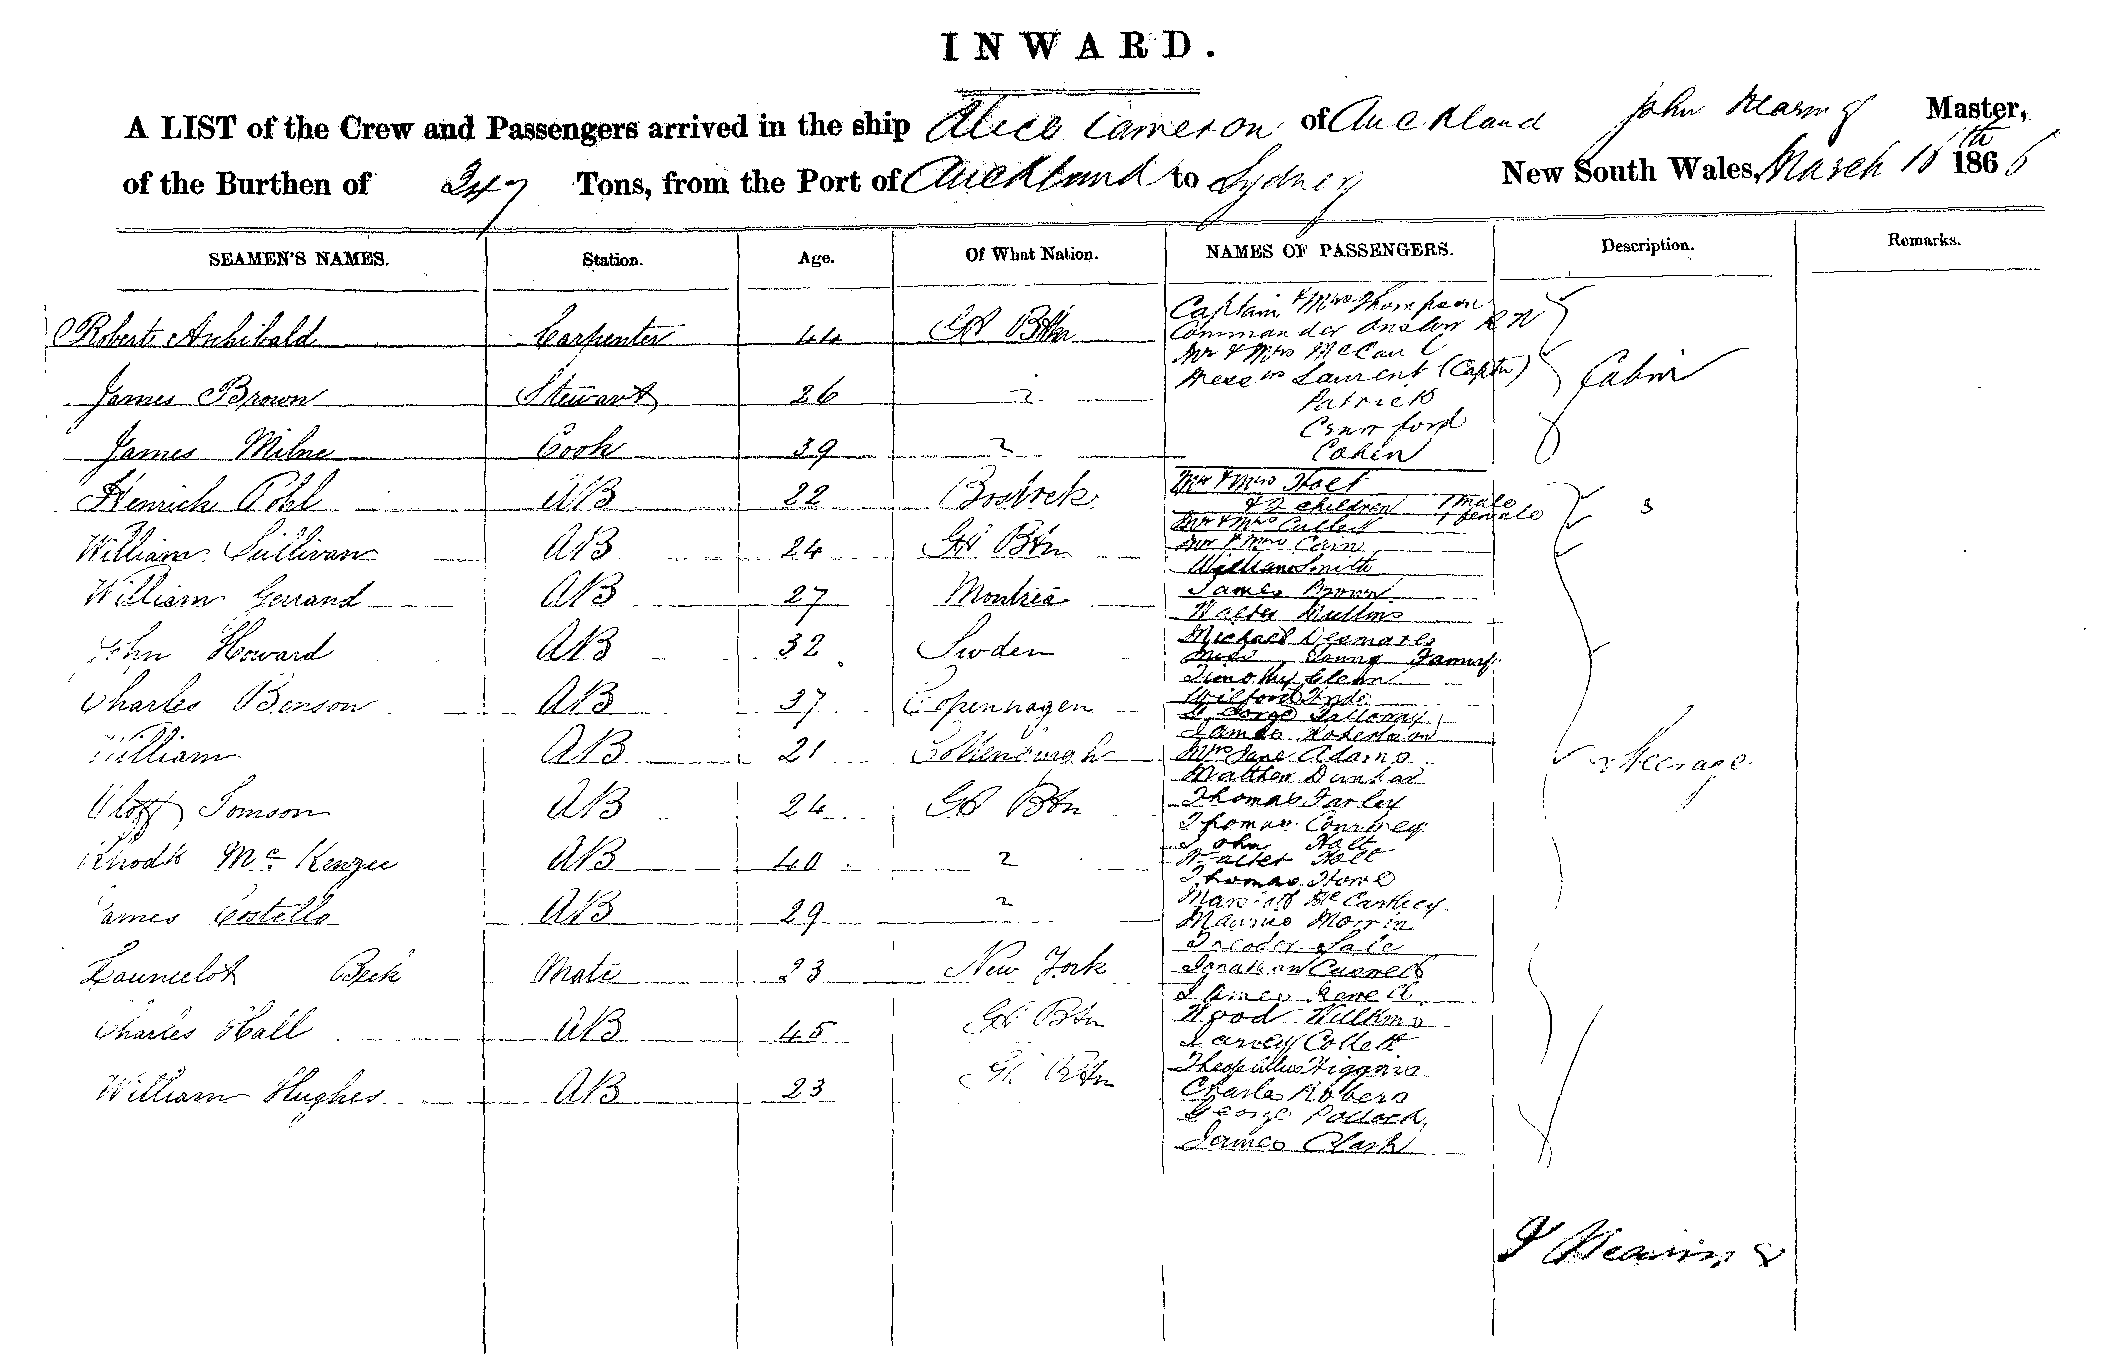 INWARD.
A LIST of the Crew and Passengers arrived in the ship Alice Cameron of Auckland John Master,
of the Burthen of 247 Tons, from the Port of Auckland to Sydney New South Wales, March 16th 1866
SEAMEN'S NAMES. Station. Age. Of What Nation. NAMES OF PASSENGERS. Description. Remarks.
Captain & Mrs Thompson
Robert Archibald Carpenter 44 Gt Bttn Commander Onslow R N
Mr & Mrs
Messrs Laurent (Captn) Cabin
James Brown Stewart 26 " Patrick
Crawford
James Milne Cook 39 " Cohen
Mr & Mrs Holt
Henrich Pohl AB 22 & 2 children 1 male
1 female
Mr & Mrs
William Sullivan AB 24 Gt Btn Mr & Mrs Cain
William Smith
William Gerrand AB 27 James Brown
Walter Mullins
John Howard AB 32 Sweden Michael
Miss
Timothy Glenn
Charles Benson AB 37 Copenhagen
George Galloway
James Robertson
William AB 21 Mrs Jane Adams Steerage
Matthew Dunbar
Oloff Tomson AB 24 Gt Btn Thomas Farley
Thomas Courtney
John Holt
Mc Kenzie AB 40 " Walter Holt
Thomas Howe
James Costello AB 29 " McCarthey
Maurice Morrin
Sale
Launcelot Beck Mate 23 New York
James
Charles Hall AB 45 Gt Btn Wood Wilkins
Harvey Collett
William Hughes AB 23 Gt Btn Theophilus Higgins
Charles Robers
George Pollock
James Clark